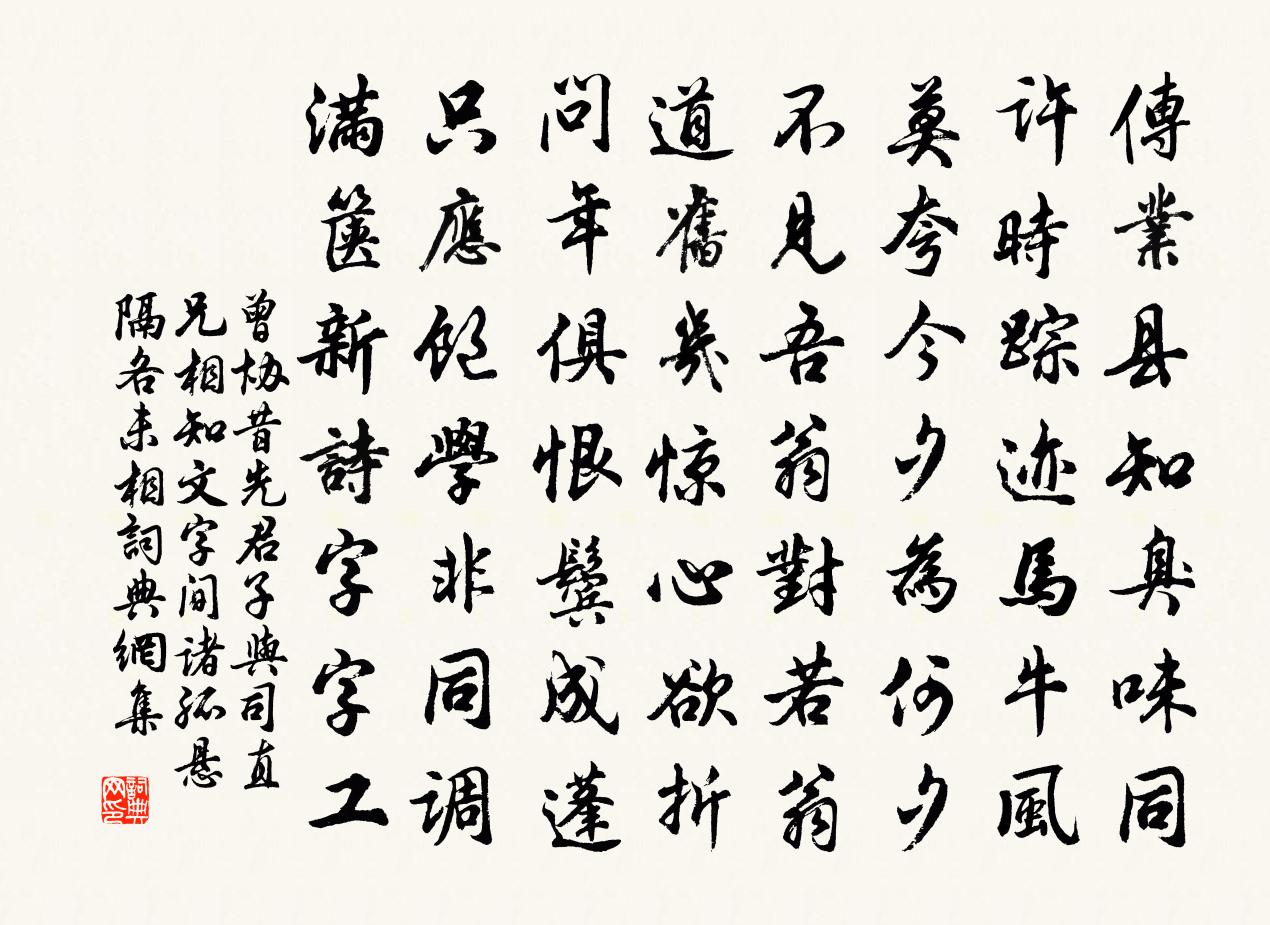 傳業县知臭味同
許時踪迹馬牛風
莫夸今夕為何夕
不見吾翁對若翁
道舊幾惊心欲折
問年俱恨鬢成蓬
只應飽學非同调
滿篋新詩字字工
曾协昔先君子與司直
兄相知文字间诸孤悬
隔各未相詞典網集
詞典网印